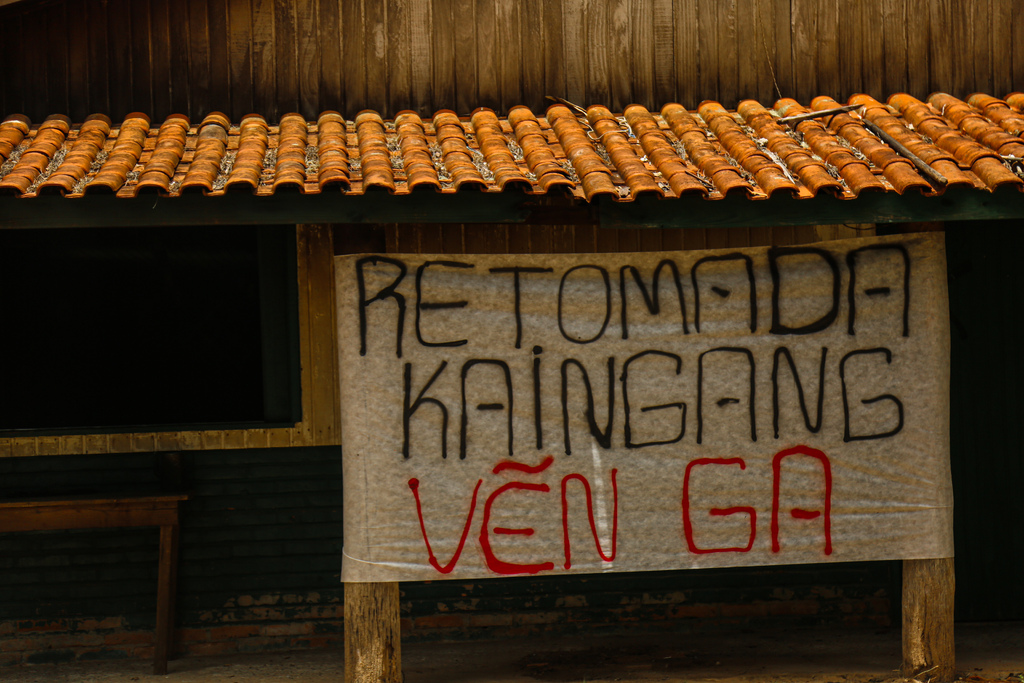 RETOMADA
KAINGANG
VẼN GA